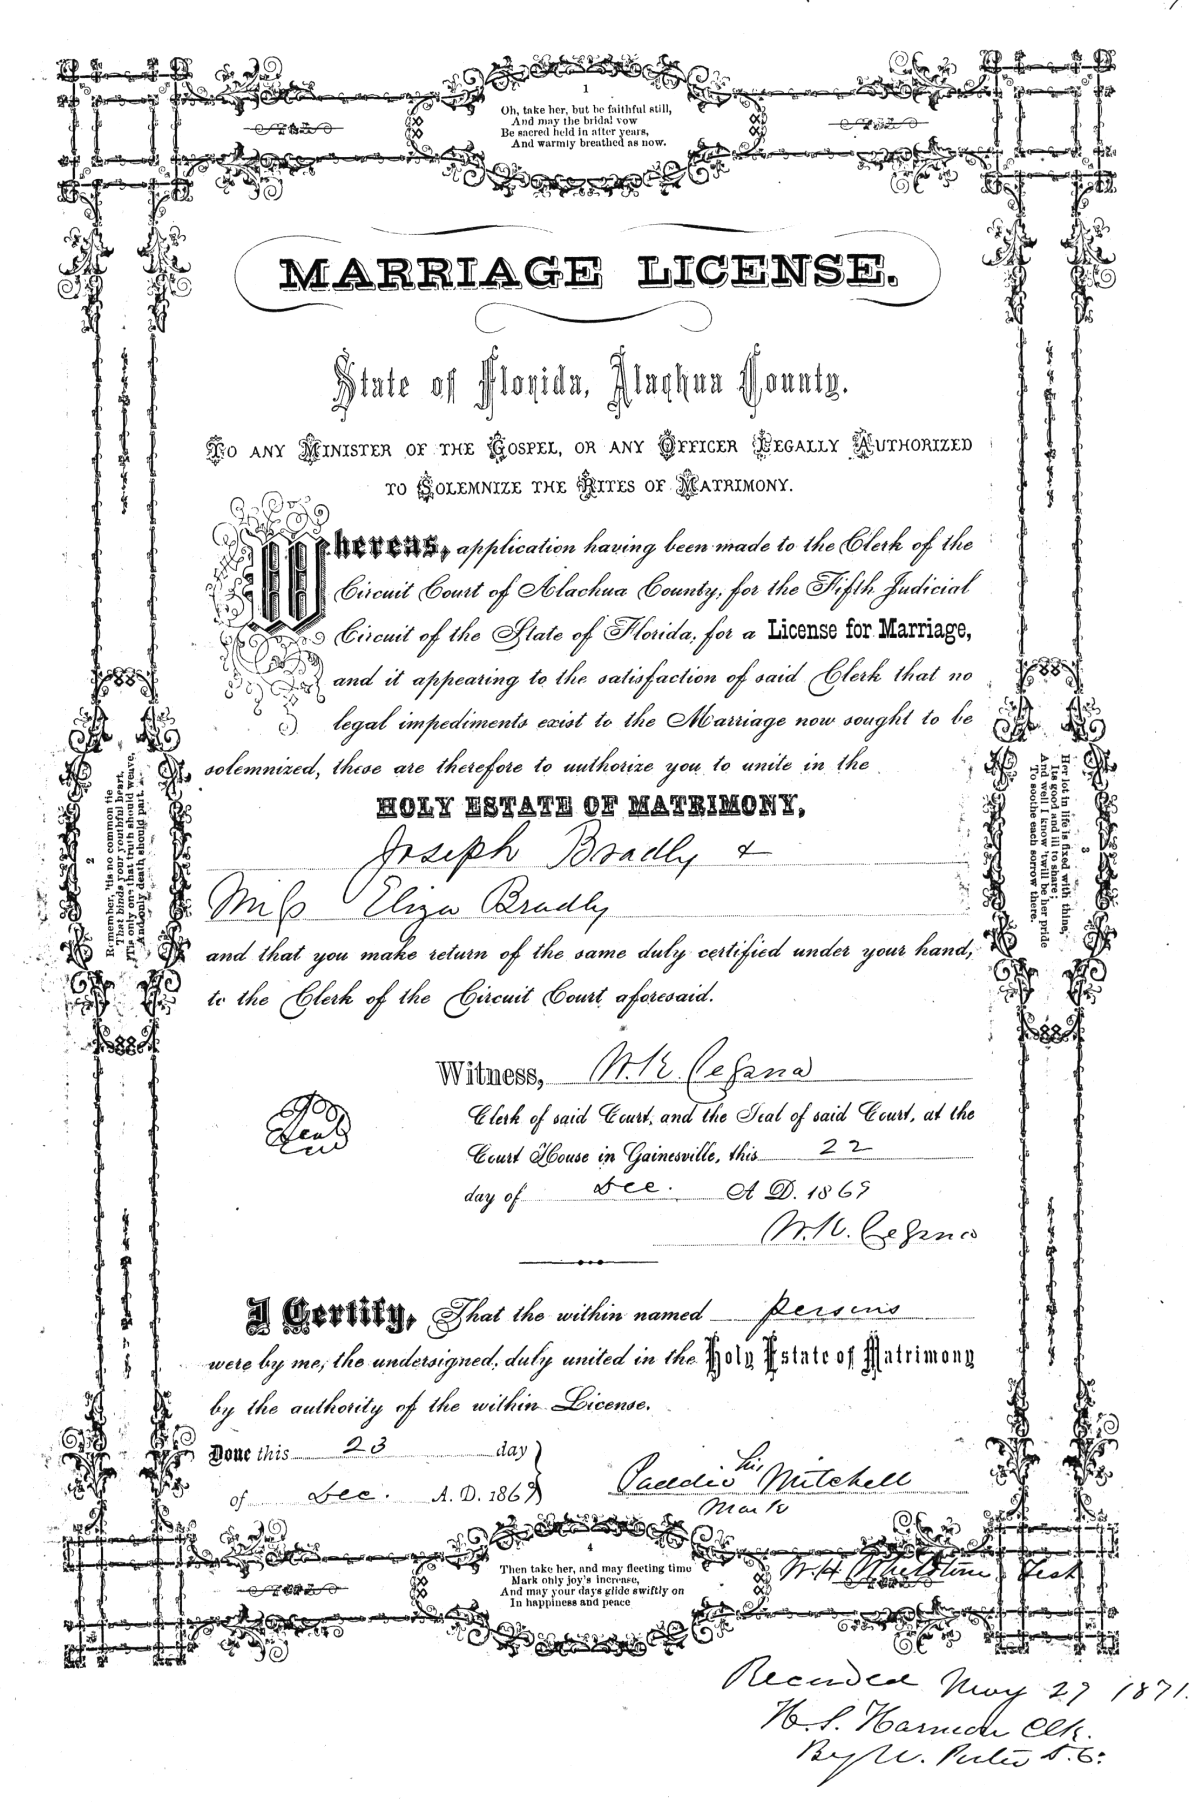 1
Oh, take her, but be faithful still,
And may the bridal vow
Be sacred held in after years,
And warmly breathed as now.
MARRIAGE LICENSE.
State of Florida, Alachua County.
TO ANY MINISTER OF THE GOSPEL, OR ANY OFFICER LEGALLY AUTHORIZED
TO SOLEMNIZE THE RITES OF MATRIMONY.
Whereas, application having been made to the Clerk of the
Circuit Court of Alachua County, for the Fifth Judicial
Circuit of the State of Florida, for a License for Marriage,
and it appearing to the satisfaction of said Clerk that no
legal impediments exist to the Marriage now sought to be
solemnized, these are therefore to authorize you to unite in the
HOLY ESTATE OF MATRIMONY,
Joseph Bradly &
Miss Eliza Bradly
and that you make return of the same duly certified under your hand,
to the Clerk of the Circuit Court aforesaid.
2
Remember, 'tis no common tie
That binds your youthful heart,
'Tis only one that truth should weave,
And only death should part.
3
Her lot in life is fixed with thine,
Its good and ill to share;
And well I know 'twill be her pride
To soothe each sorrow there.
Witness, W. K. Cessna
Clerk of said Court, and the Seal of said Court, at the
Court House in Gainesville, this 22
day of Dec. A. D. 1869
W. K. Cessna
Seal
I Certify, That the within named persons
were by me, the undersigned, duly united in the Holy Estate of Matrimony
by the authority of the within License.
Done this 23 day
of Dec. A. D. 1869
his
Paddio Mitchell
Mark
4
Then take her, and may fleeting time
Mark only joy's increase,
And may your days glide swiftly on
In happiness and peace
W. H. Test
Recorded May 27 1871.
H. S. Harmon Clk.
By W. Porter D. C.